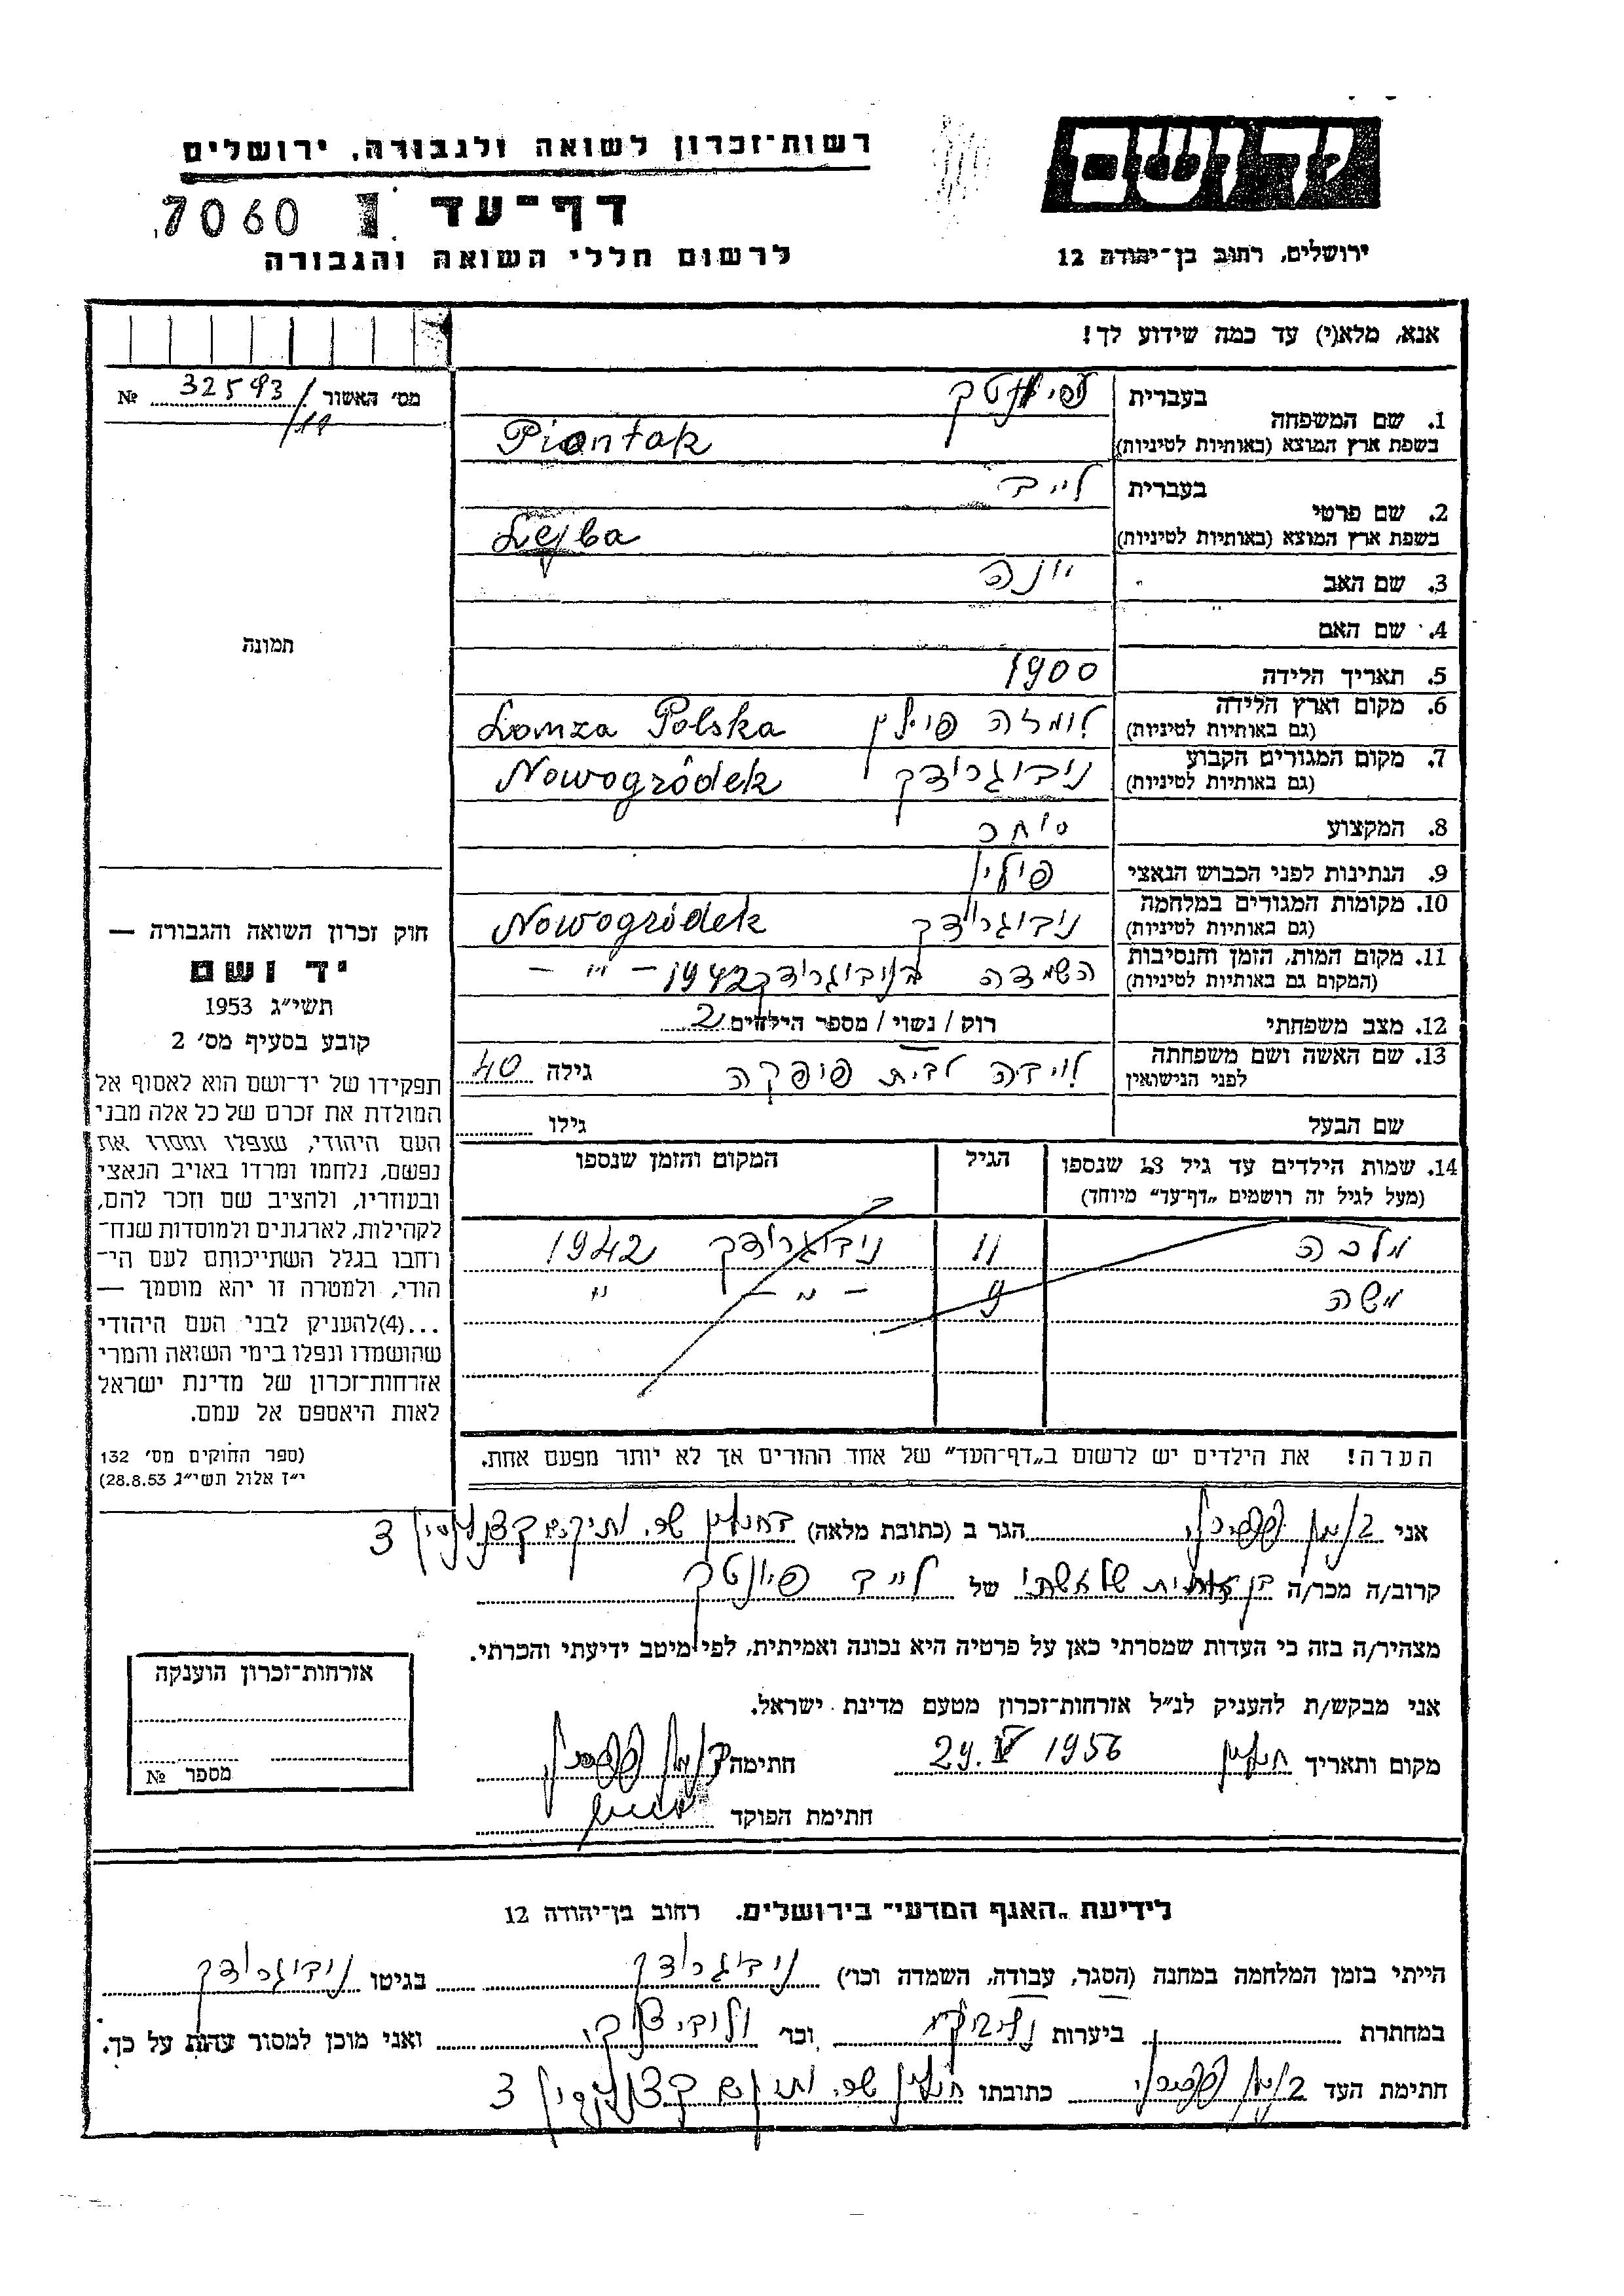 רשות־זכרון לשואה ולגבורה, ירושלים
יד ושם
דף־עד
7060
לרשום חללי השואה והגבורה
ירושלים, רחוב בן־יהודה 12
אנא, מלא(י) עד כמה שידוע לך!
מס׳ האשור 32593 №
19
1. שם המשפחה
בעברית פיונטק
בשפת ארץ המוצא (באותיות לטיניות) Piontak
2. שם פרטי
בעברית לייב
בשפת ארץ המוצא (באותיות לטיניות) Lejba
3. שם האב יונה
4. שם האם
5. תאריך הלידה 1900
6. מקום וארץ הלידה לומזה פוילין Lomza Polska
(גם באותיות לטיניות)
7. מקום המגורים הקבוע נובוגרודק Nowogródek
(גם באותיות לטיניות)
8. המקצוע סוחר
9. הנתינות לפני הכבוש הנאצי פולין
10. מקומות המגורים במלחמה נובוגרודק Nowogródek
(גם באותיות לטיניות)
11. מקום המות, הזמן והנסיבות השמדה בנובוגרודק 1942 – " –
(המקום גם באותיות לטיניות)
12. מצב משפחתי רוק / נשוי / מספר הילדים 2
13. שם האשה ושם משפחתה לפני הנישואין לבית גילה 40
שם הבעל גילו
14. שמות הילדים עד גיל 18 שנספו
(מעל לגיל זה רושמים „דף־עד" מיוחד)
הגיל
המקום והזמן שנספו
מלכה 11 נובוגרודק 1942
משה 9 – " – "
הערה! את הילדים יש לרשום ב„דף־העד" של אחד ההורים אך לא יותר מפעם אחת.
תמונה
חוק זכרון השואה והגבורה —
יד ושם
תשי״ג 1953
קובע בסעיף מס׳ 2
תפקידו של יד־ושם הוא לאסוף אל
המולדת את זכרם של כל אלה מבני
העם היהודי, שנפלו ומסרו את
נפשם, נלחמו ומרדו באויב הנאצי
ובעוזריו, ולהציב שם וזכר להם,
לקהילות, לארגונים ולמוסדות שנח־
רחבו בגלל השתייכותם לעם הי־
הודי, ולמטרה זו יהא מוסמך —
...(4)להעניק לבני העם היהודי
שהושמדו ונפלו בימי השואה והמרי
אזרחות־זכרון של מדינת ישראל
לאות היאספם אל עמם.
(ספר החוקים מס׳ 132
י״ז אלול תשי״ג 28.8.53)
אני הגר ב (כתובת מלאה) 3
קרוב/ה מכר/ה של לייב פיונטק
מצהיר/ה בזה כי העדות שמסרתי כאן על פרטיה היא נכונה ואמיתית, לפי מיטב ידיעתי והכרתי.
אני מבקש/ת להעניק לנ״ל אזרחות־זכרון מטעם מדינת ישראל.
מקום ותאריך 29. 1956 חתימה
חתימת הפוקד
אזרחות־זכרון הוענקה
מספר №
לידיעת „האגף המדעי" בירושלים. רחוב בן־יהודה 12
הייתי בזמן המלחמה במחנה (הסגר, עבודה, השמדה וכו׳) נובוגרודק בגיטו נובוגרודק
במחתרת ביערות וכו׳ ואני מוכן למסור עדות על כך.
חתימת העד כתובתו 3